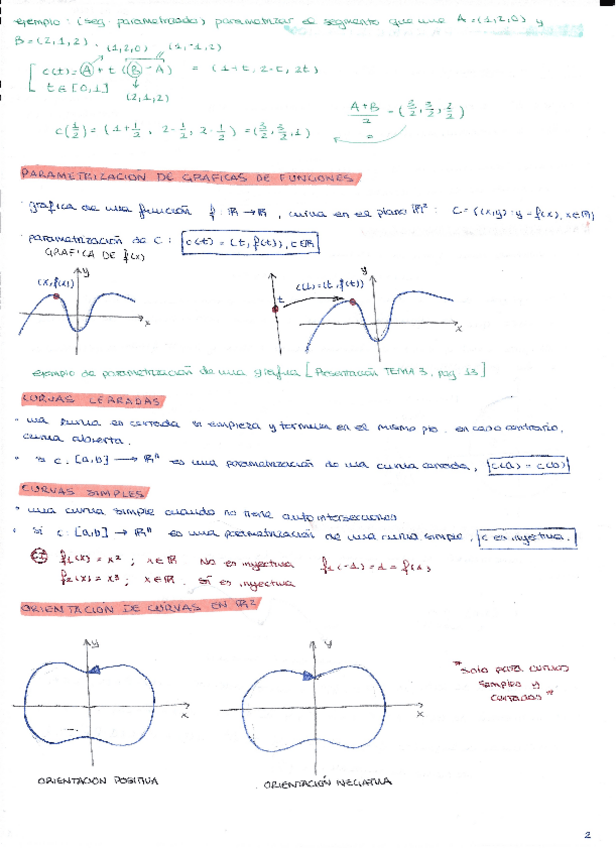 ejemplo: (seg. parametrizado) parametrizar el segmento que une A=(1,2,0) y
B=(2,1,2).
(1,2,0) (1,-1,2)
c(t)=A+t(B-A) = (1+t, 2-t, 2t)
t∈[0,1]
(2,1,2)
c(1/2)=(1+1/2, 2-1/2, 2·1/2)=(3/2,3/2,1)
A+B/2 = (3/2,3/2,2/2)
PARAMETRIZACION DE GRÁFICAS DE FUNCIONES
· gráfica de una función f: R→R, curva en el plano R²: C={(x,y): y=f(x), x∈R}
· parametrización de C: c(t)=(t,f(t)), t∈R
GRAFICA DE f(x)
(x,f(x)) y x
t c(t)=(t,f(t)) y x
ejemplo de parametrización de una gráfica [Presentación TEMA 3, pag 13]
CURVAS CERRADAS
· una curva es cerrada si empieza y termina en el mismo pto. en caso contrario,
curva abierta.
· si c: [a,b] → Rⁿ es una parametrización de una curva cerrada, c(a)=c(b)
CURVAS SIMPLES
· una curva simple cuando no tiene autointersecciones
· Si c: [a,b] → Rⁿ es una parametrización de una curva simple, c es inyectiva.
f₁(x)=x²; x∈R. No es inyectiva f₁(-1)=1=f(1)
f₂(x)=x³; x∈R. Sí es inyectiva
ORIENTACIÓN DE CURVAS EN R²
y x
y x
"solo para curvas
simples y
cerradas"
ORIENTACION POSITIVA
ORIENTACIÓN NEGATIVA
2